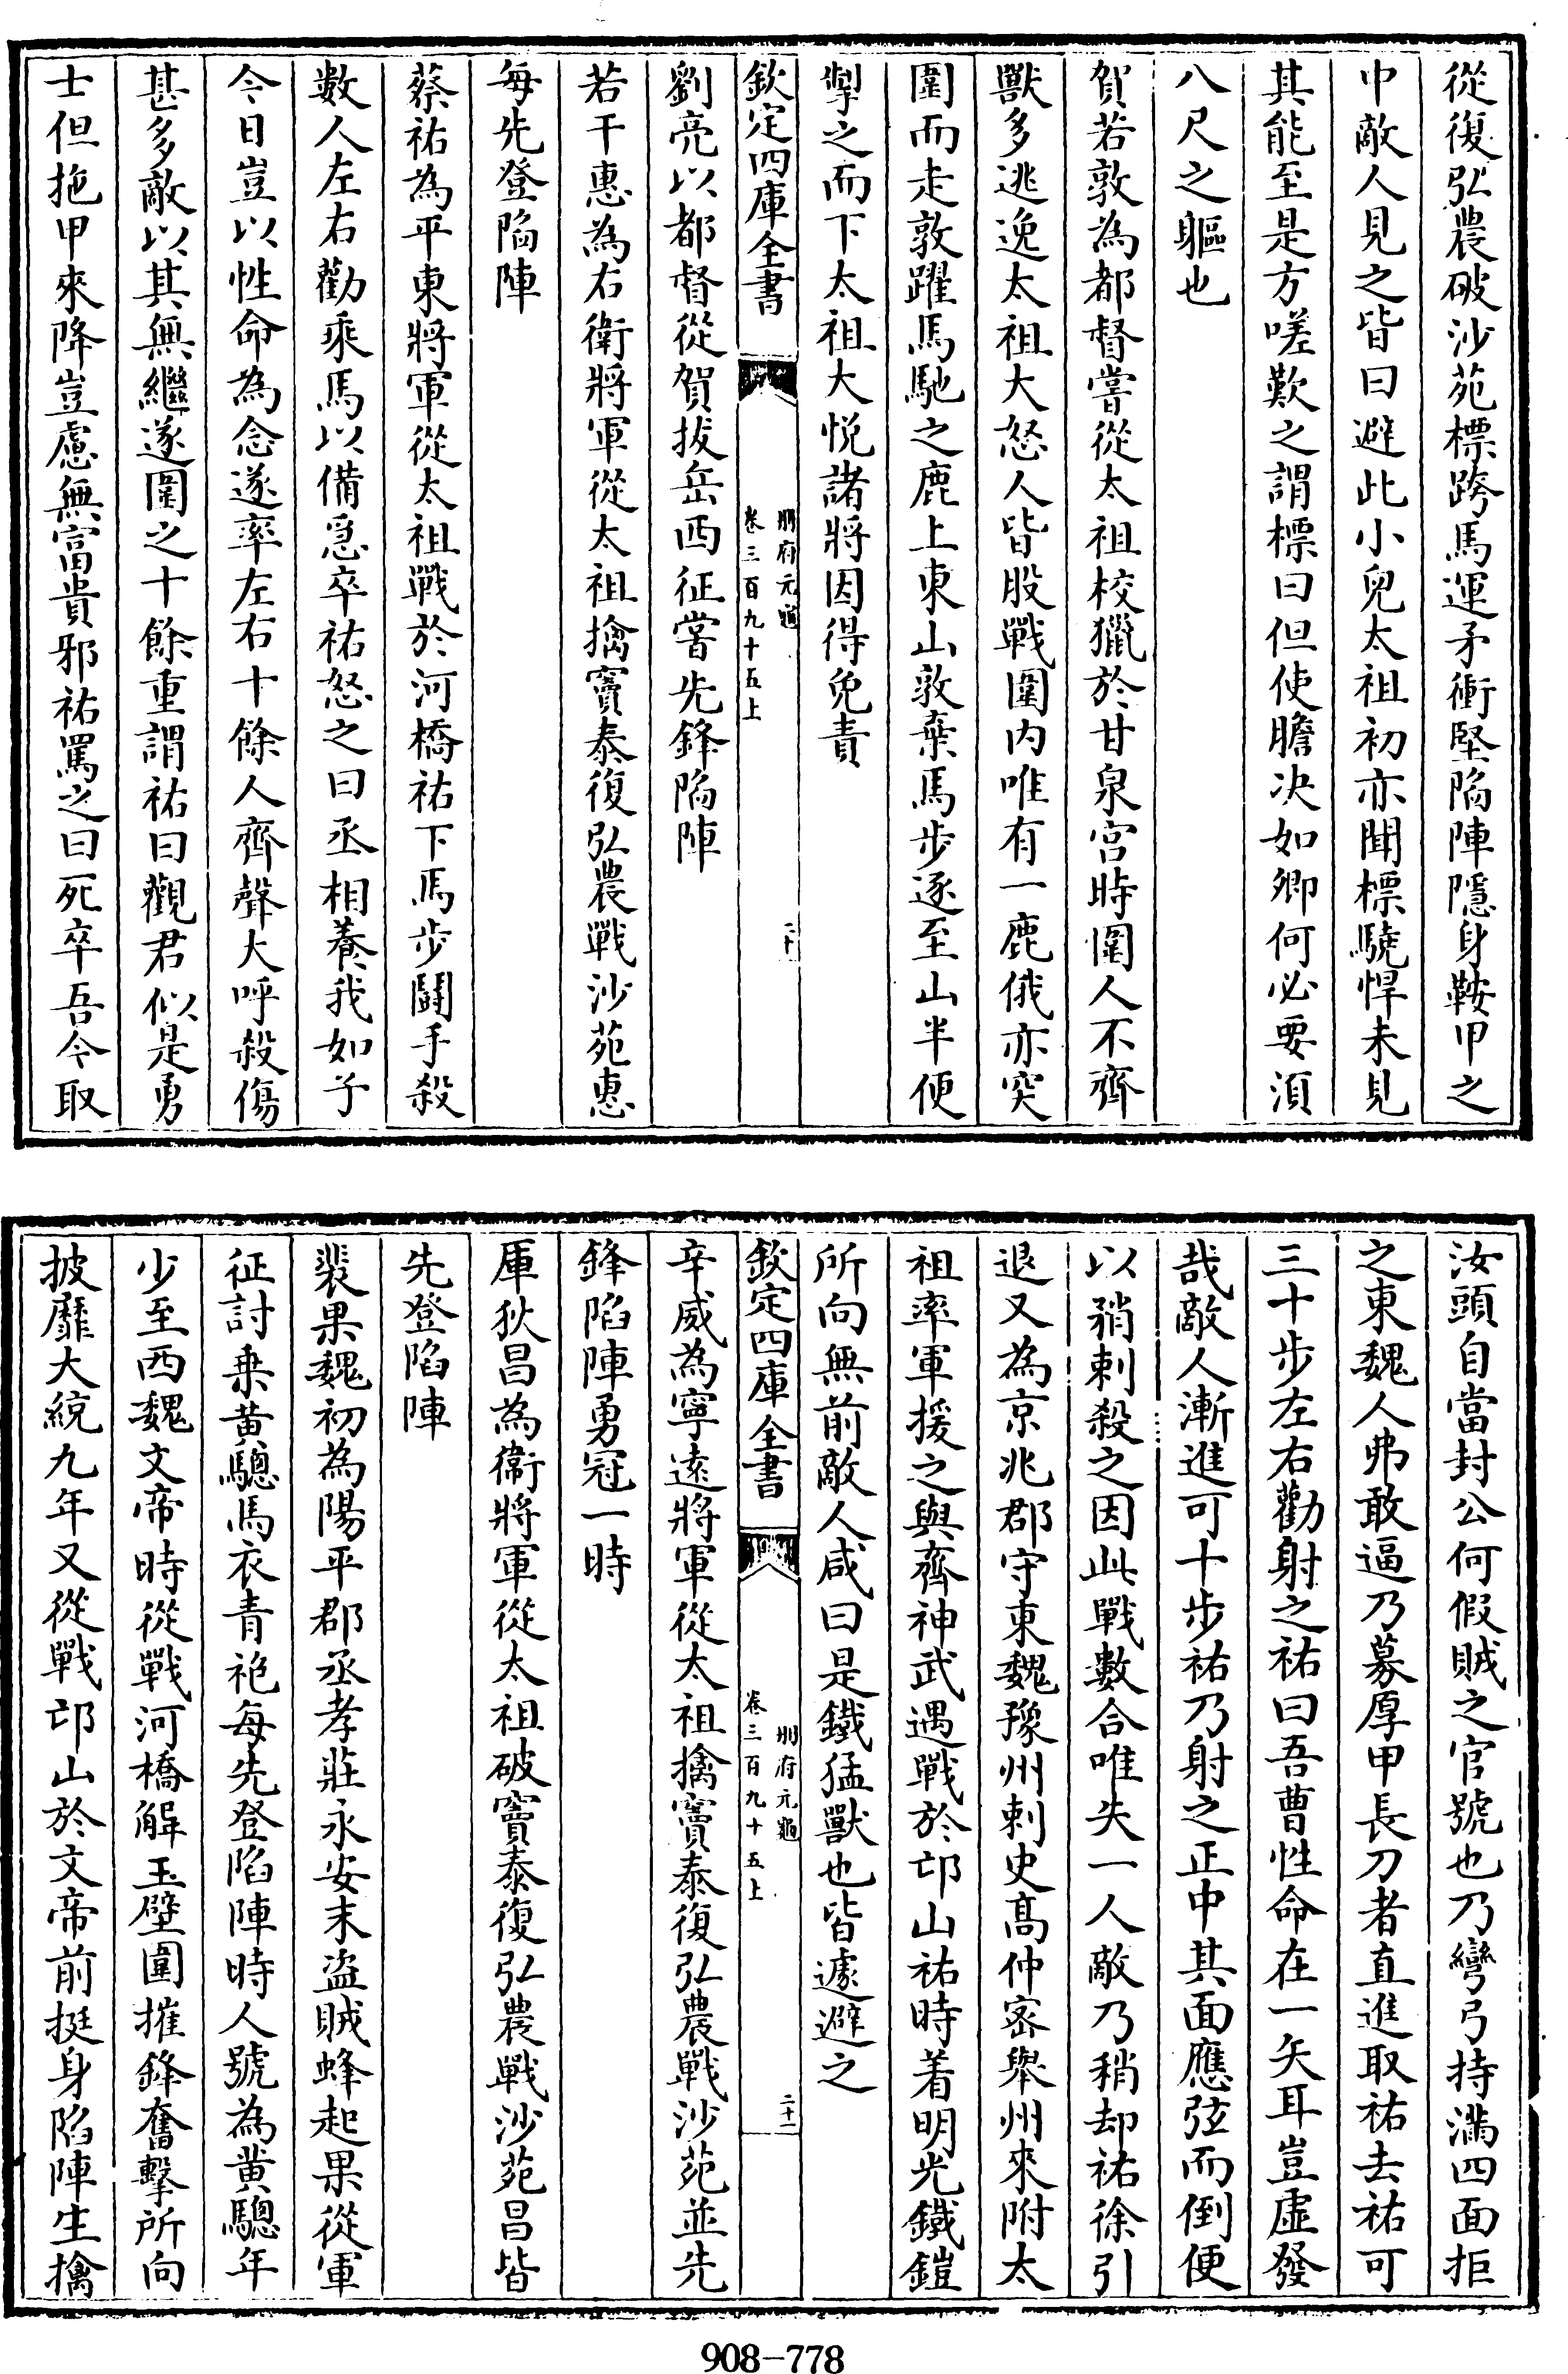 從復弘農破沙苑標跨馬運矛衝堅陷陣隱身鞍甲之
中敵人見之皆曰避此小兒太祖初亦聞標驍悍未見
其能至是方嗟歎之謂標曰但使膽决如卿何必要須
八尺之軀也
賀若敦為都督嘗從太祖校獵於甘泉宫時圍人不齊
獸多逃逸太祖大怒人皆股戰圍内唯有一鹿俄亦突
圍而走敦躍馬馳之鹿上東山敦棄馬步逐至山半便
掣之而下太祖大悦諸將因得免責
欽定四庫全書
冊府元龜
卷三百九十五上
二十
劉亮以都督從賀拔岳西征嘗先鋒陷陣
若干惠為右衛將軍從太祖擒竇泰復弘農戰沙苑惠
每先登陷陣
蔡祐為平東將軍從太祖戰於河橋祐下馬步鬭手殺
數人左右勸乘馬以備急卒祐怒之曰丞相養我如子
今日豈以性命為念遂率左右十餘人齊聲大呼殺傷
甚多敵以其無繼遂圍之十餘重謂祐曰觀君似是勇
士但拖甲來降豈慮無富貴邪祐罵之曰死卒吾今取
汝頭自當封公何假賊之官號也乃彎弓持滿四面拒
之東魏人弗敢逼乃募厚甲長刀者直進取祐去祐可
三十步左右勸射之祐曰吾曹性命在一矢耳豈虛發
哉敵人漸進可十步祐乃射之正中其面應弦而倒便
以矟刺殺之因此戰數合唯失一人敵乃稍却祐徐引
退又為京兆郡守東魏豫州刺史高仲密舉州來附太
祖率軍援之與齊神武遇戰於邙山祐時着明光鐵鎧
所向無前敵人咸曰是鐵猛獸也皆遽避之
欽定四庫全書
冊府元龜
卷三百九十五上
二十一
辛威為寧遠將軍從太祖擒竇泰復弘農戰沙苑並先
鋒陷陣勇冠一時
厙狄昌為衛將軍從太祖破竇泰復弘農戰沙苑昌皆
先登陷陣
裴果魏初為陽平郡丞孝莊永安末盗賊蜂起果從軍
征討乗黄驄馬衣青袍每先登陷陣時人號為黄驄年
少至西魏文帝時從戰河橋解玉壁圍摧鋒奮擊所向
披靡大統九年又從戰邙山於文帝前挺身陷陣生擒
908-778